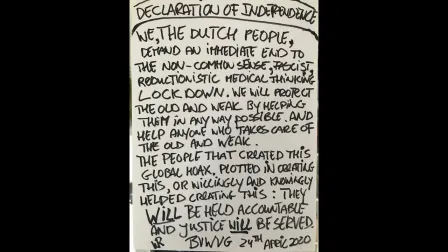 DECLARATION OF INDEPENDENCE
WE, THE DUTCH PEOPLE,
DEMAND AN IMMEDIATE END TO
THE NON-COMMON SENSE, FASCIST,
REDUCTIONISTIC MEDICAL THINKING
LOCKDOWN. WE WILL PROTECT
THE OLD AND WEAK BY HELPING
THEM IN ANY WAY POSSIBLE. AND
HELP ANYONE WHO TAKES CARE OF
THE OLD AND WEAK.
THE PEOPLE THAT CREATED THIS
GLOBAL HOAX, PLOTTED IN CREATING
THIS, OR WILLINGLY AND KNOWINGLY
HELPED CREATING THIS: THEY
WILL BE HELD ACCOUNTABLE
AND JUSTICE WILL BE SERVED.
BVWVG 24TH APRIL 2020